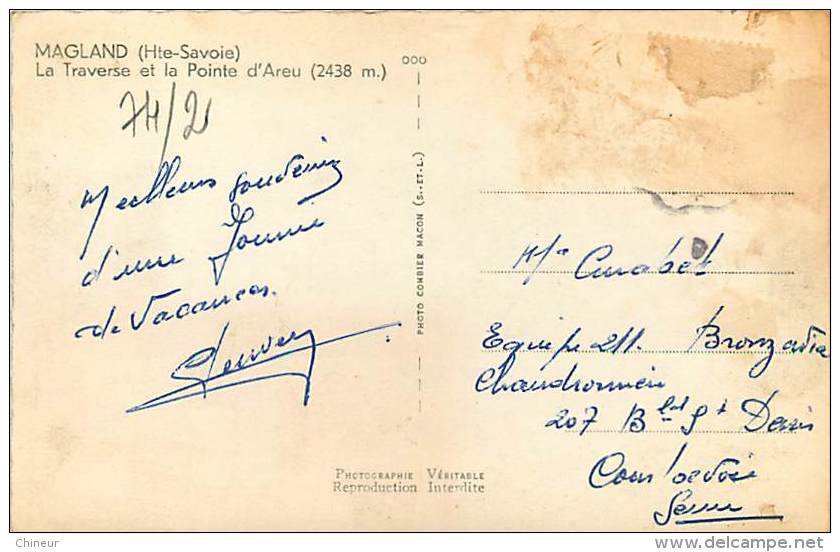 MAGLAND (Hte-Savoie)
La Traverse et la Pointe d'Areu (2438 m.)
74/21
Meilleurs souvenirs
d'une Journée
de Vacances.
PHOTO COMBIER MACON (S.-ET-L.)
Mr Curabet
Equipe 211. Bronzavia
Chaudronnerie
207 Bld St Denis
Courbevoie
Seine
PHOTOGRAPHIE VÉRITABLE
Reproduction Interdite
Chineur
www.delcampe.net